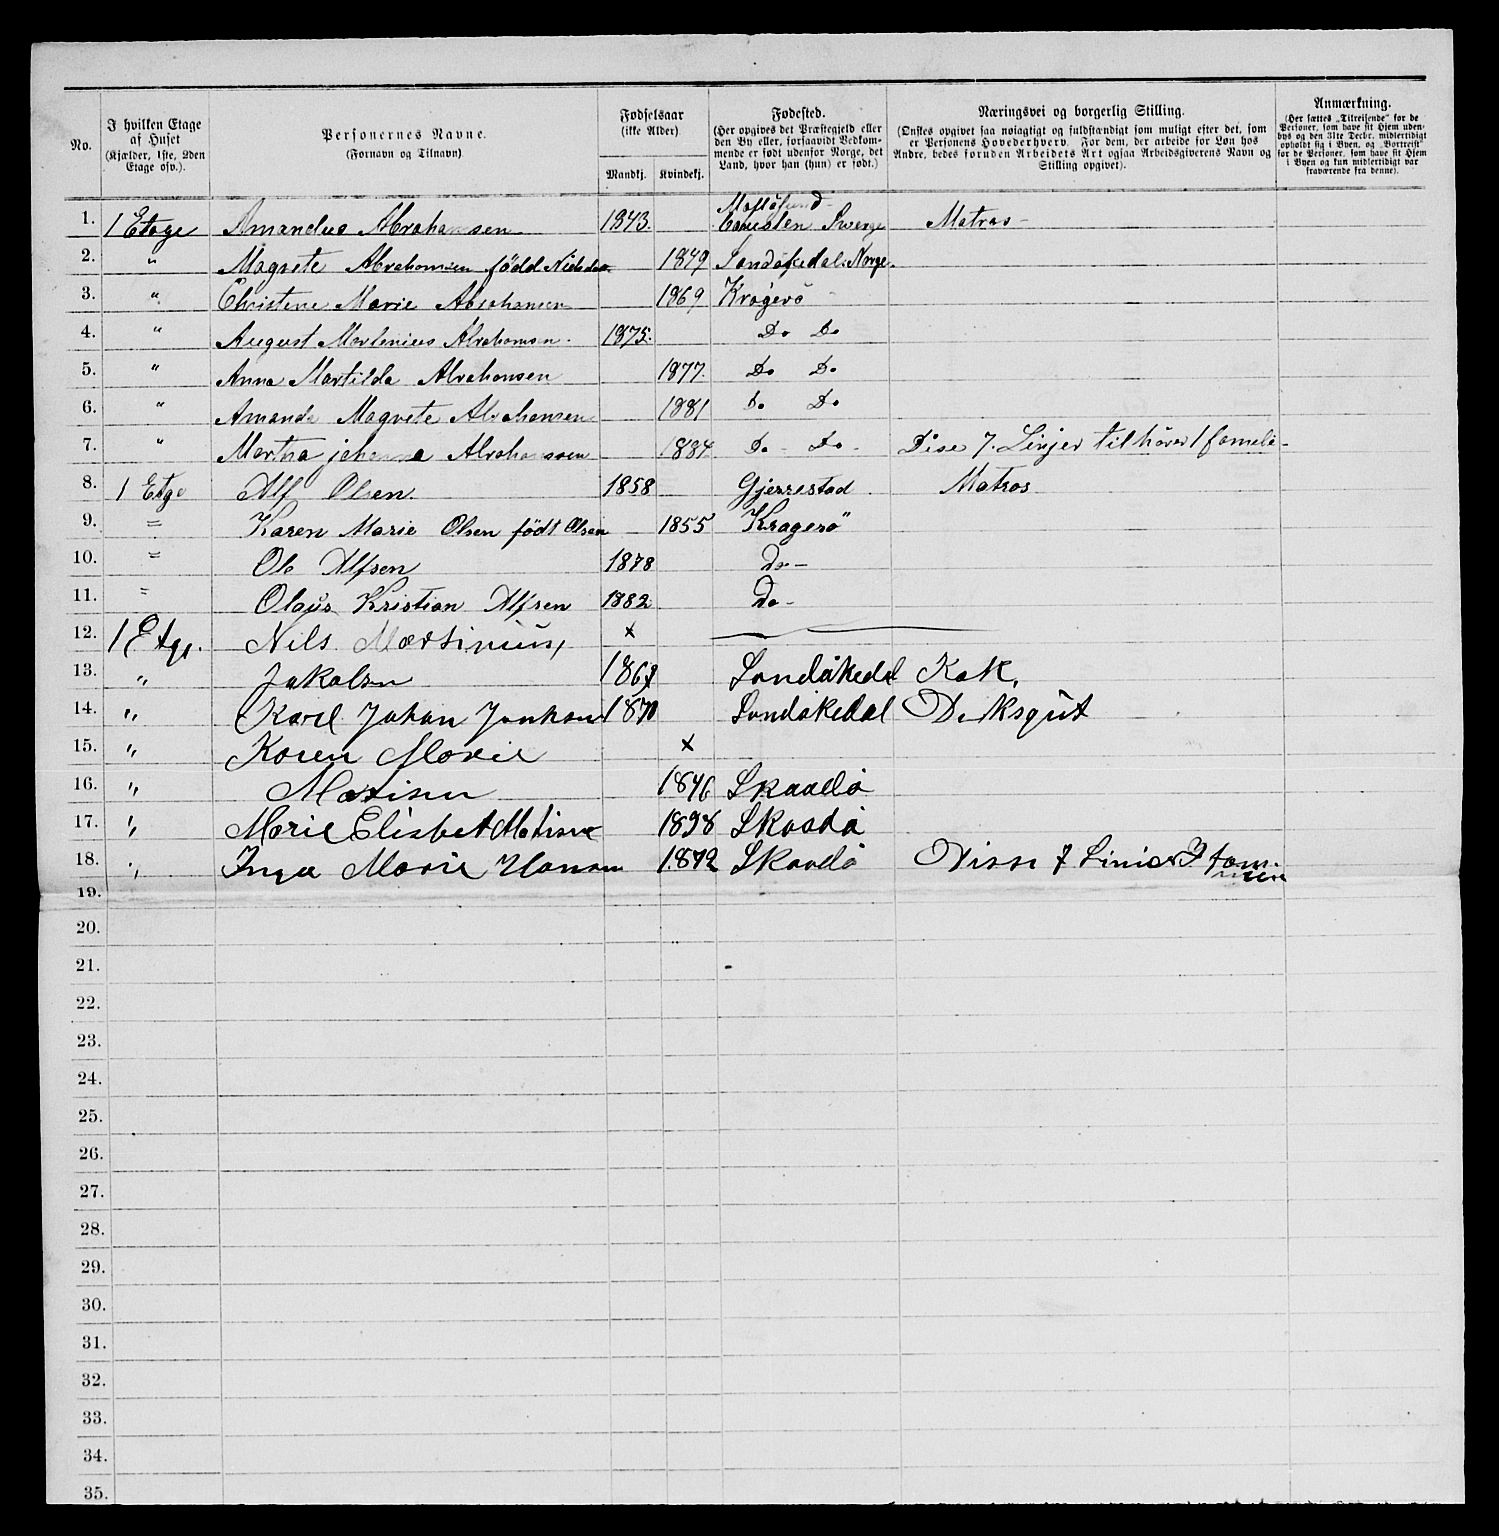 No.
I hvilken Etage af Huset (Kjælder, 1ste, 2den Etage osv.).
Personernes Navne. (Fornavn og Tilnavn)
Fødselsaar (ikke Alder)
Mandkj. Kvindekj.
Fødested. (Her opgives det Præstegjeld eller den By eller, forsaavidt Vedkommende er født udenfor Norge, det Land, hvor han (hun) er født.)
Næringsvei og borgerlig Stilling. (Ønskes opgivet saa nøiagtigt og fuldstændigt som muligt efter det, som er Personens Hovederhverv. For dem, der arbeide for Løn hos Andre, bedes foruden Arbeidets Art ogsaa Arbeidsgiverens Navn og Stilling opgivet).
Anmærkning. (Her sættes „Tilreisende“ for de Personer, som have sit Hjem udenbys og den 31te Decbr. midlertidigt opholdt sig i Byen, og „Bortreist“ for de Personer, som have sit Hjem i Byen og kun midlertidigt var fraværende fra denne).
1. 1 Etage Amandus Abrahamsen 1843. Swerge Matros
2. " Magrete Abrahamsen född 1849 Sandøkedal. Norge.
3. " Christene Marie Abrahamsen 1869 Kragerö
4. " August Martenius Abrahamsen. 1875. Do Do
5. " Anna Martilda Abrahansen 1877. Do Do
6. " Amanda Magrete Abrahansen 1881 Do Do
7. " Martha johanna Abrahanssen 1884 Do - Do - Dise 7. Linjer tilhörer 1 fameli -
8. 1 Etge Alf Olsen. 1858 Gjerrestad Matros
9. = Karen Marie Olsen født Olsen 1855 Kragerø"
10. = Ole Alfsen 1878 do -
11. = Olaus Kristian Alfsen 1882 Do -
12. 1 Etge. Nils Martinius,
13. " Jakolsen Sondåkedal Kok.
14. " Karl Johan 1870 Sondåkedal
15. " Karen Marie
16. " Matisen 1846 Skaadø
17. " Marie Elisbet Matisen Skaadø
18. " Inga Marie Hansen 1872 Skaadø Disse 7 Linier
19.
20.
21.
22.
23.
24.
25.
26.
27.
28.
29.
30.
31.
32.
33.
34.
35.